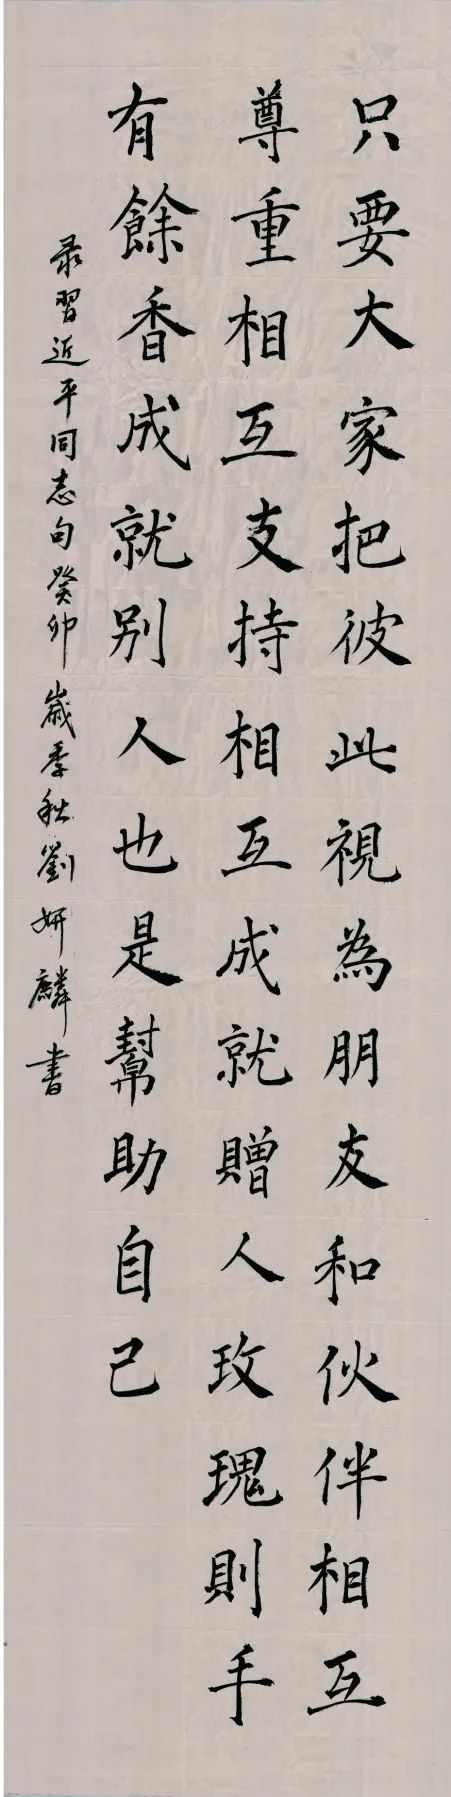 只要大家把彼此視為朋友和伙伴相互
尊重相互支持相互成就贈人玫瑰則手
有餘香成就别人也是幫助自己
录習近平同志句癸卯歲季秋劉妍麟書